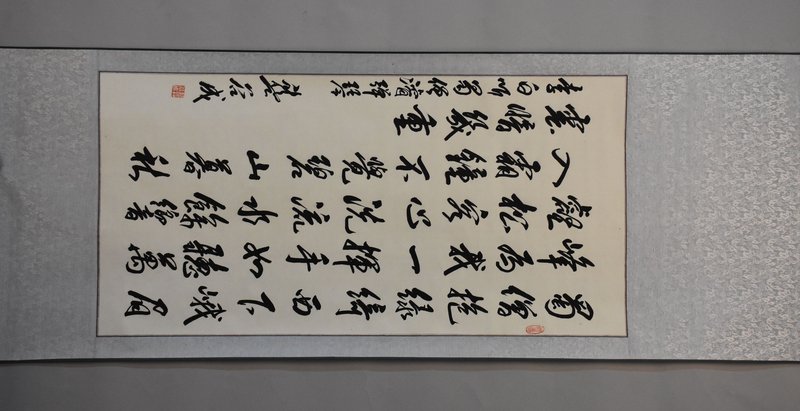 蜀僧抱綠綺西下峨眉
峰為我一揮手如聽萬
壑松客心洗流水餘響
入霜鐘不覺碧山暮秋
雲暗幾重
李白听蜀僧濬彈琴